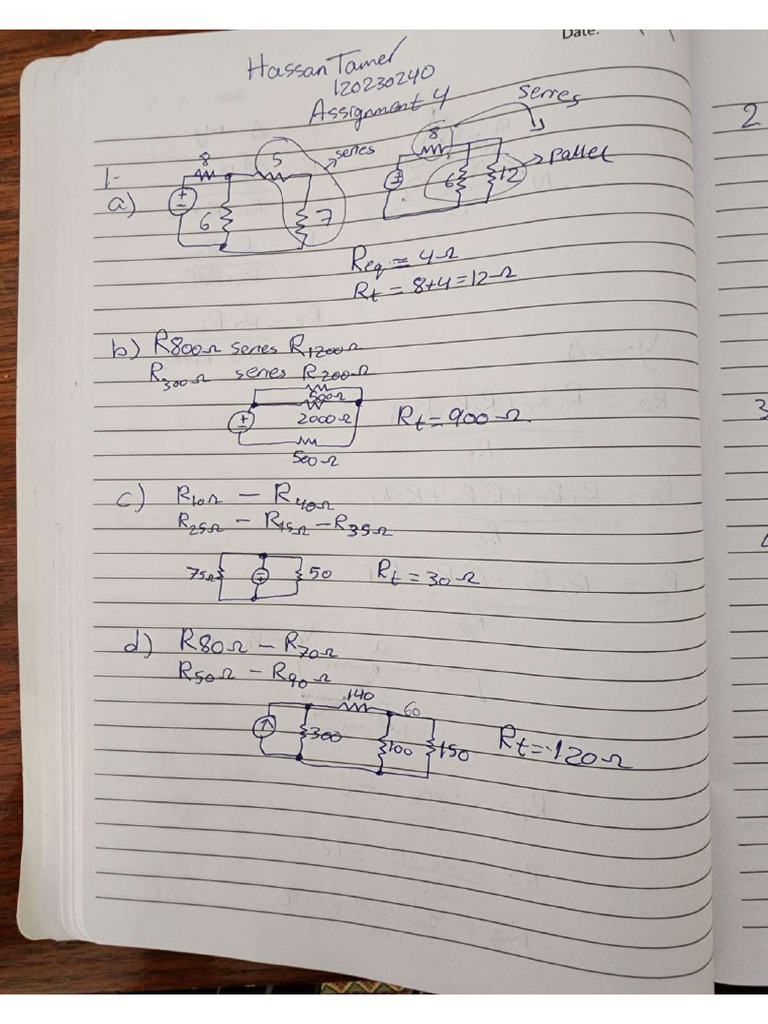 Date:
Hassan Tamer
120230240
Assignment 4
1-
a)
8
5
series
6
7
8
series
6
12
Parllel
Req = 4Ω
Rt = 8+4=12Ω
b) R800Ω series R1200Ω
R300Ω series R200Ω
500Ω
2000Ω
500Ω
Rt=900Ω
c) R10Ω - R40Ω
R25Ω - R15Ω - R35Ω
75Ω
50
Rt = 30Ω
d) R80Ω - R70Ω
R50Ω - R90Ω
140
60
300
100
150
Rt=120Ω
2
3